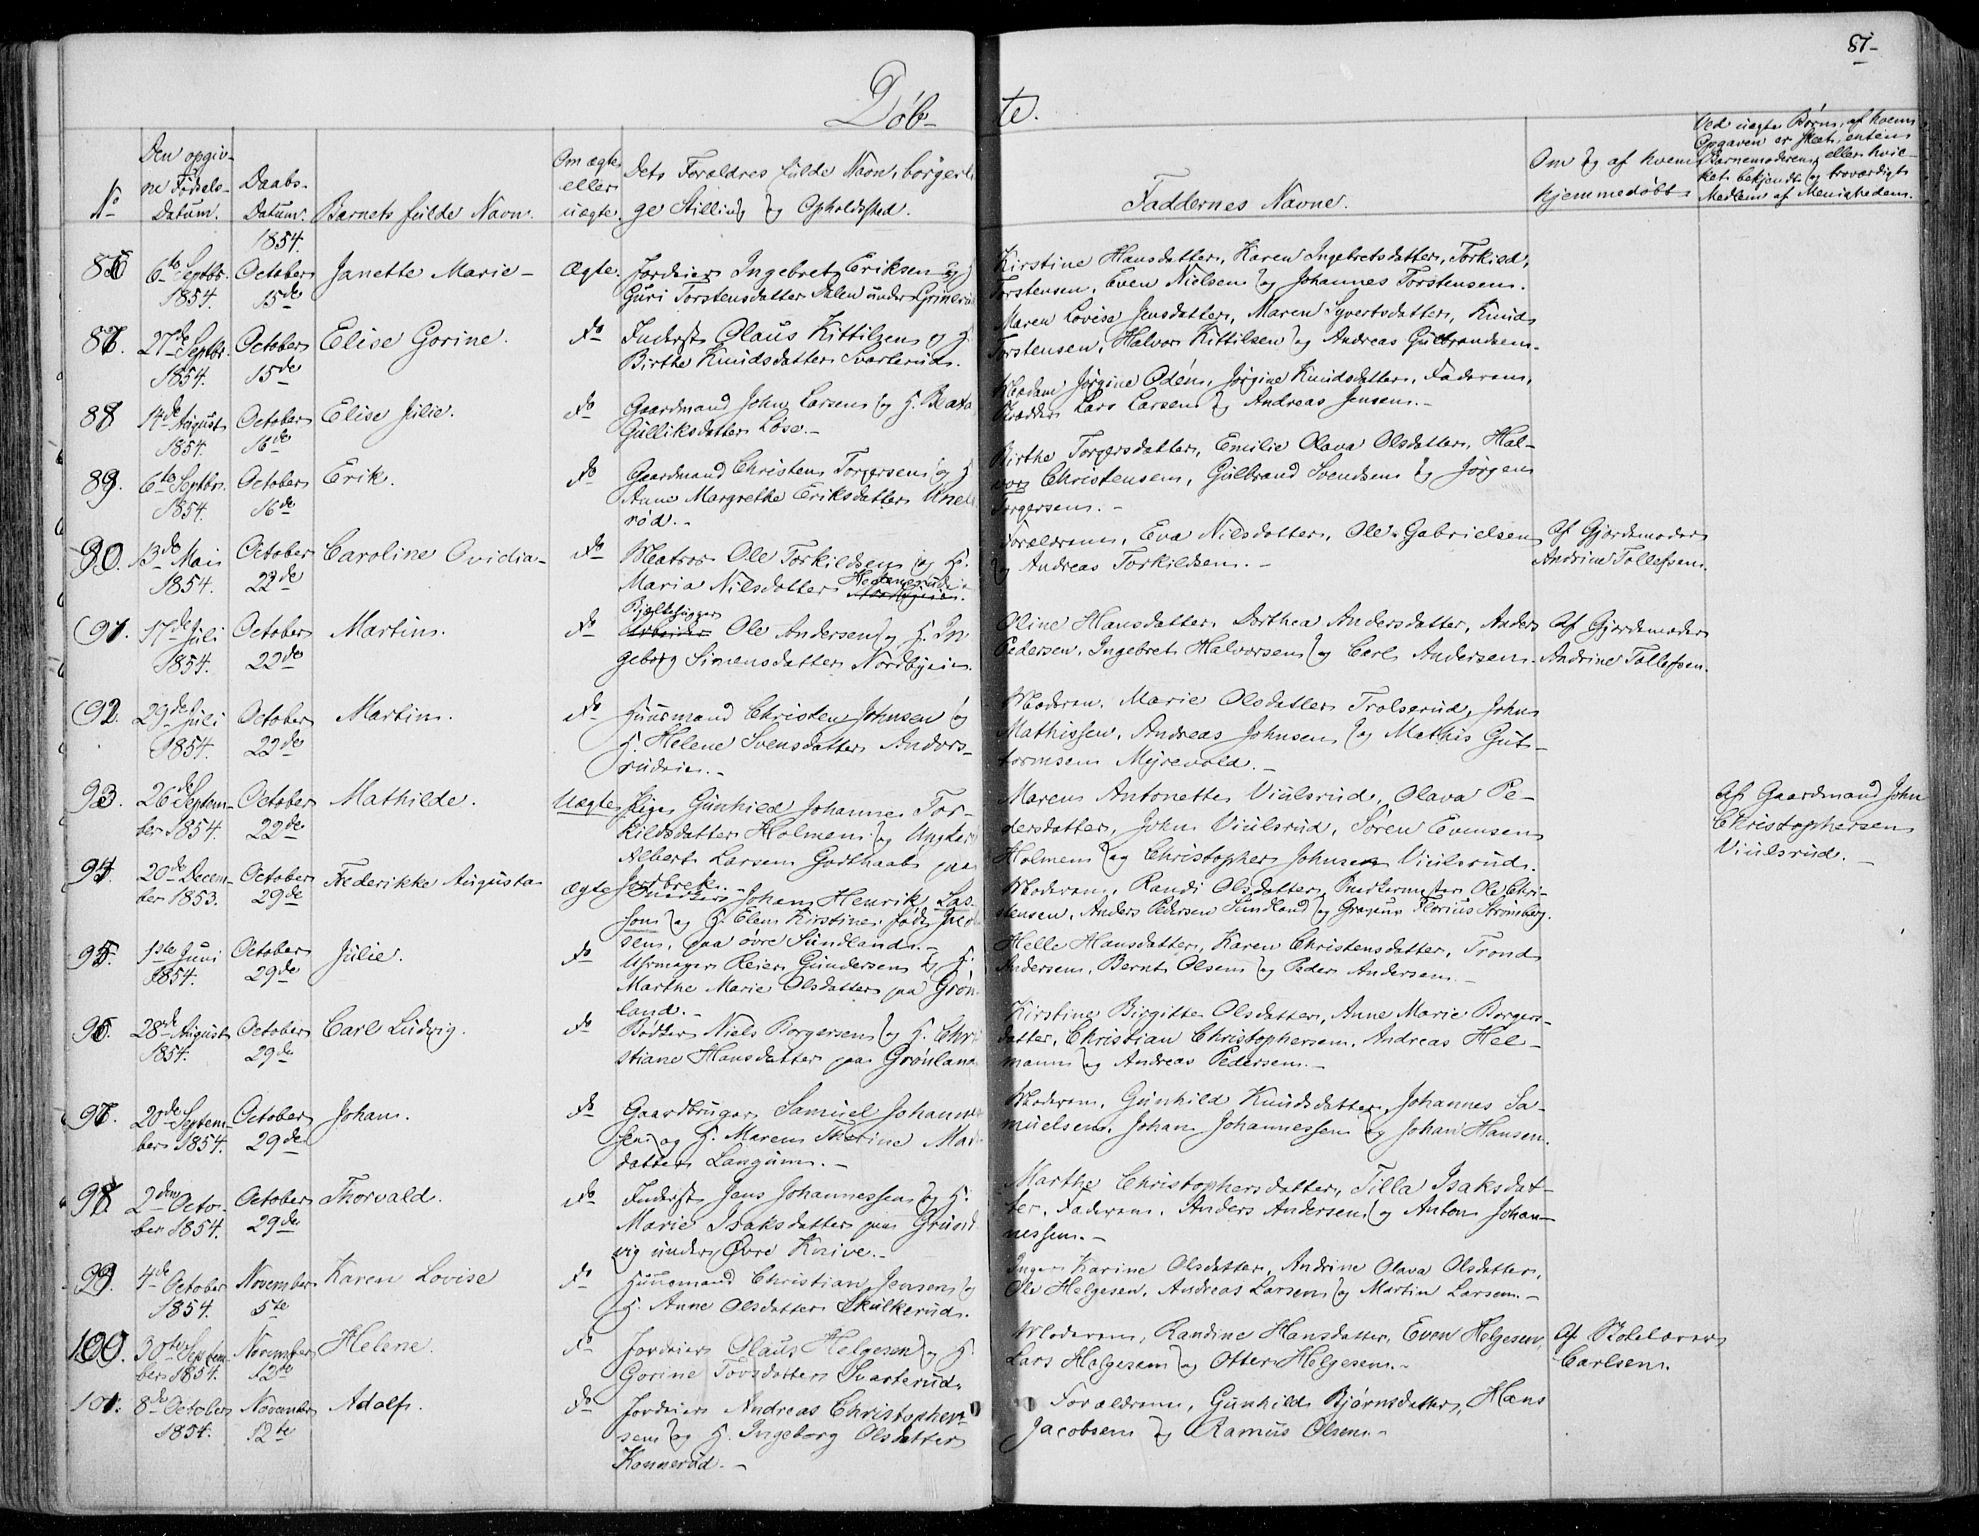 87-
Døb-
te.
No
Den opgiv-
ne Fødsels-
Datum.
Daabs-
Datum.
Barnets fulde Navn.
Om ægte
eller
uægte.
Dets Forældres fulde Navn, borgerli
ge Stilling og Opholdssted.
Faddernes Navne.
Om og af hvem
hjemmedøbt
Ved uægte Børn, af hvem
Opgaven er skeet, enten
Barnemoderen, eller hvil-
ket bekjendt og troværdigt
Medlem af Menigheden.
1854.
86 6te Septbr. October Janette Marie - Ægte. Jordeier Ingebret Eriksen og
1854. 15de Guri Torstensdatter Dalen under Grinerud
Kirstine Hansdatter, Karen Ingebretsdatter, Torkild,
Torstensen, Even Nielsen og Johannes Torstensen.
87. 27de Septbr. October Elise Gorine. do Inderst Olaus Kittilsen og H.
1854. 15de Birthe Knudsdatter Svarterud.
Maren Lovise Jensdatter, Maren Syvertsdatter, Knud
Torstensen, Halvor Kittilsen og Andreas Gulbrandsen.
88 14de August October Elise Julie. do Gaardmand John Larsen og H. Beata
1854. 16de Gulliksdatter Løse.-
Madam Jørgine Odén, Jørgine Knudsdatter, Faderen,
Skrædder Lars Larsen og Andreas Jensen.-
89. 6te Septbr. October Erik. do Gaardmand Christen Torgersen og H
1854. 16de Anne Margrethe Eriksdatter Une
rød.-
Birthe Torgersdatter, Emilie Olava Olsdatter, Hal-
vor Christensen, Gulbrand Svendsen og Jørgen
Torgersen.-
90. 13de Mai October Caroline Ovidia- do Matros Ole Torkildsen og H.
1854. 22de Maria Nilsdatter
Forældrene, Eva Nilsdatter, Ole Gabrielsen
og Andreas Torkildsen.-
Af Gjordemoder
Andrine Tollefsen.
91. 17de Juli October Martin. do Bjeltehugger Arbeider Ole Andersen og H. In
1854. 22de geborg Simensdatter Nordbyeie
Oline Hansdatter, Dorthea Andersdatter, Anders
Pedersen, Ingebret Halvorsen og Carl Andersen.
Af Gjordemoder
Andrine Tollefsen.
92. 29de Juli October Martin. do Huusmand Christen Johnsen og
1854. 22de H. Helene Svensdatter Anders-
rudeie.-
Moderen, Marie Olsdatter Trolserud, John
Mathissen, Andreas Johnsen og Mathis Gut-
tormsen Myrevold.-
93. 26de Septem- October Mathilde. Uægte Pige Gunhild Johanne Tor-
ber 1854. 22de kildsdatter Holmen og Ungkarl
Albert Larsen Godthaab paa
Jarbrek.-
Maren Antonette Viulsrud, Olava Pe-
dersdatter, John Viulsrud, Søren Evensen
Holmen og Christopher Johnsen Viulsrud.
Af Gaardmand John
Christophersen
Viulsrud.-
94. 20de Decem- October Frederikke Augusta Ægte Johan Henrik Las-
ber 1853. 29de son og H. Elen Kirstine, født
sen, paa øvre Sundland.-
Moderen, Randi Olsdatter, Ole Chri-
stensen, Anders Pedersen Sundland og Florius Strømberg.
95. 1ste Juni October Julie. do Uhrmager Reier Gundersen og H.
1854. 29de Marthe Marie Olsdatter paa Grøn
land.-
Helle Hansdatter, Karen Christensdatter, Trond
Andersen, Bernt Olsen og Peder Andersen.-
96. 28de August October Carl Ludvig. do Bødker Niels Borgersen og H. Chri
1854. 29de stiane Hansdatter paa Grønland
Kirstine Birgitte Olsdatter, Anne Marie Borgers-
datter, Christian Christophersen, Andreas Hel-
mann og Andreas Pedersen.-
97. 20de Septem- October Johan. do Gaardbruger Samuel Johannes
ber 1854. 29de sen og H. Maren Thorine Mad
datter Langum.-
Moderen, Gunhild Knudsdatter, Johannes Sa-
muelsen, Johan Johannessen og Johan Hansen.
98. 2den Octo- October Thorvald. do Inderst Jens Johannessen og H.
ber 1854. 29de Marie Isaksdatter paa Grund
vig under Øvre Knive.-
Marthe Christophersdatter, Tilla Isaksdat-
ter, Faderen, Anders Andersen og Anton Johan-
nessen.-
99. 4de October November Karen Lovise do Huusmand Christian Jensen og
1854. 5te H. Anne Olsdatter Skulkerud.
Inger Karine Olsdatter, Andrine Olava Olsdatter,
Ole Helgesen, Andreas Larsen og Martin Larsen.-
100. 30te Septem- November Helene. do Jordeier Olaus Helgesen og H.
ber 1854. 12te Gorine Tovsdatter Svarterud.
Moderen, Randine Hansdatter, Even Helgesen,
Lars Helgesen og Otter Helgesen.-
Af Skolelærer
Carlsen.
101. 8de October November Adolf. do Jordeier Andreas Christopher-
1854. 12te sen og H. Ingeborg Olsdatter
Konnerud.-
Forældrene, Gunhild Bjørnsdatter, Hans
Jacobsen og Ramus Olsen.-